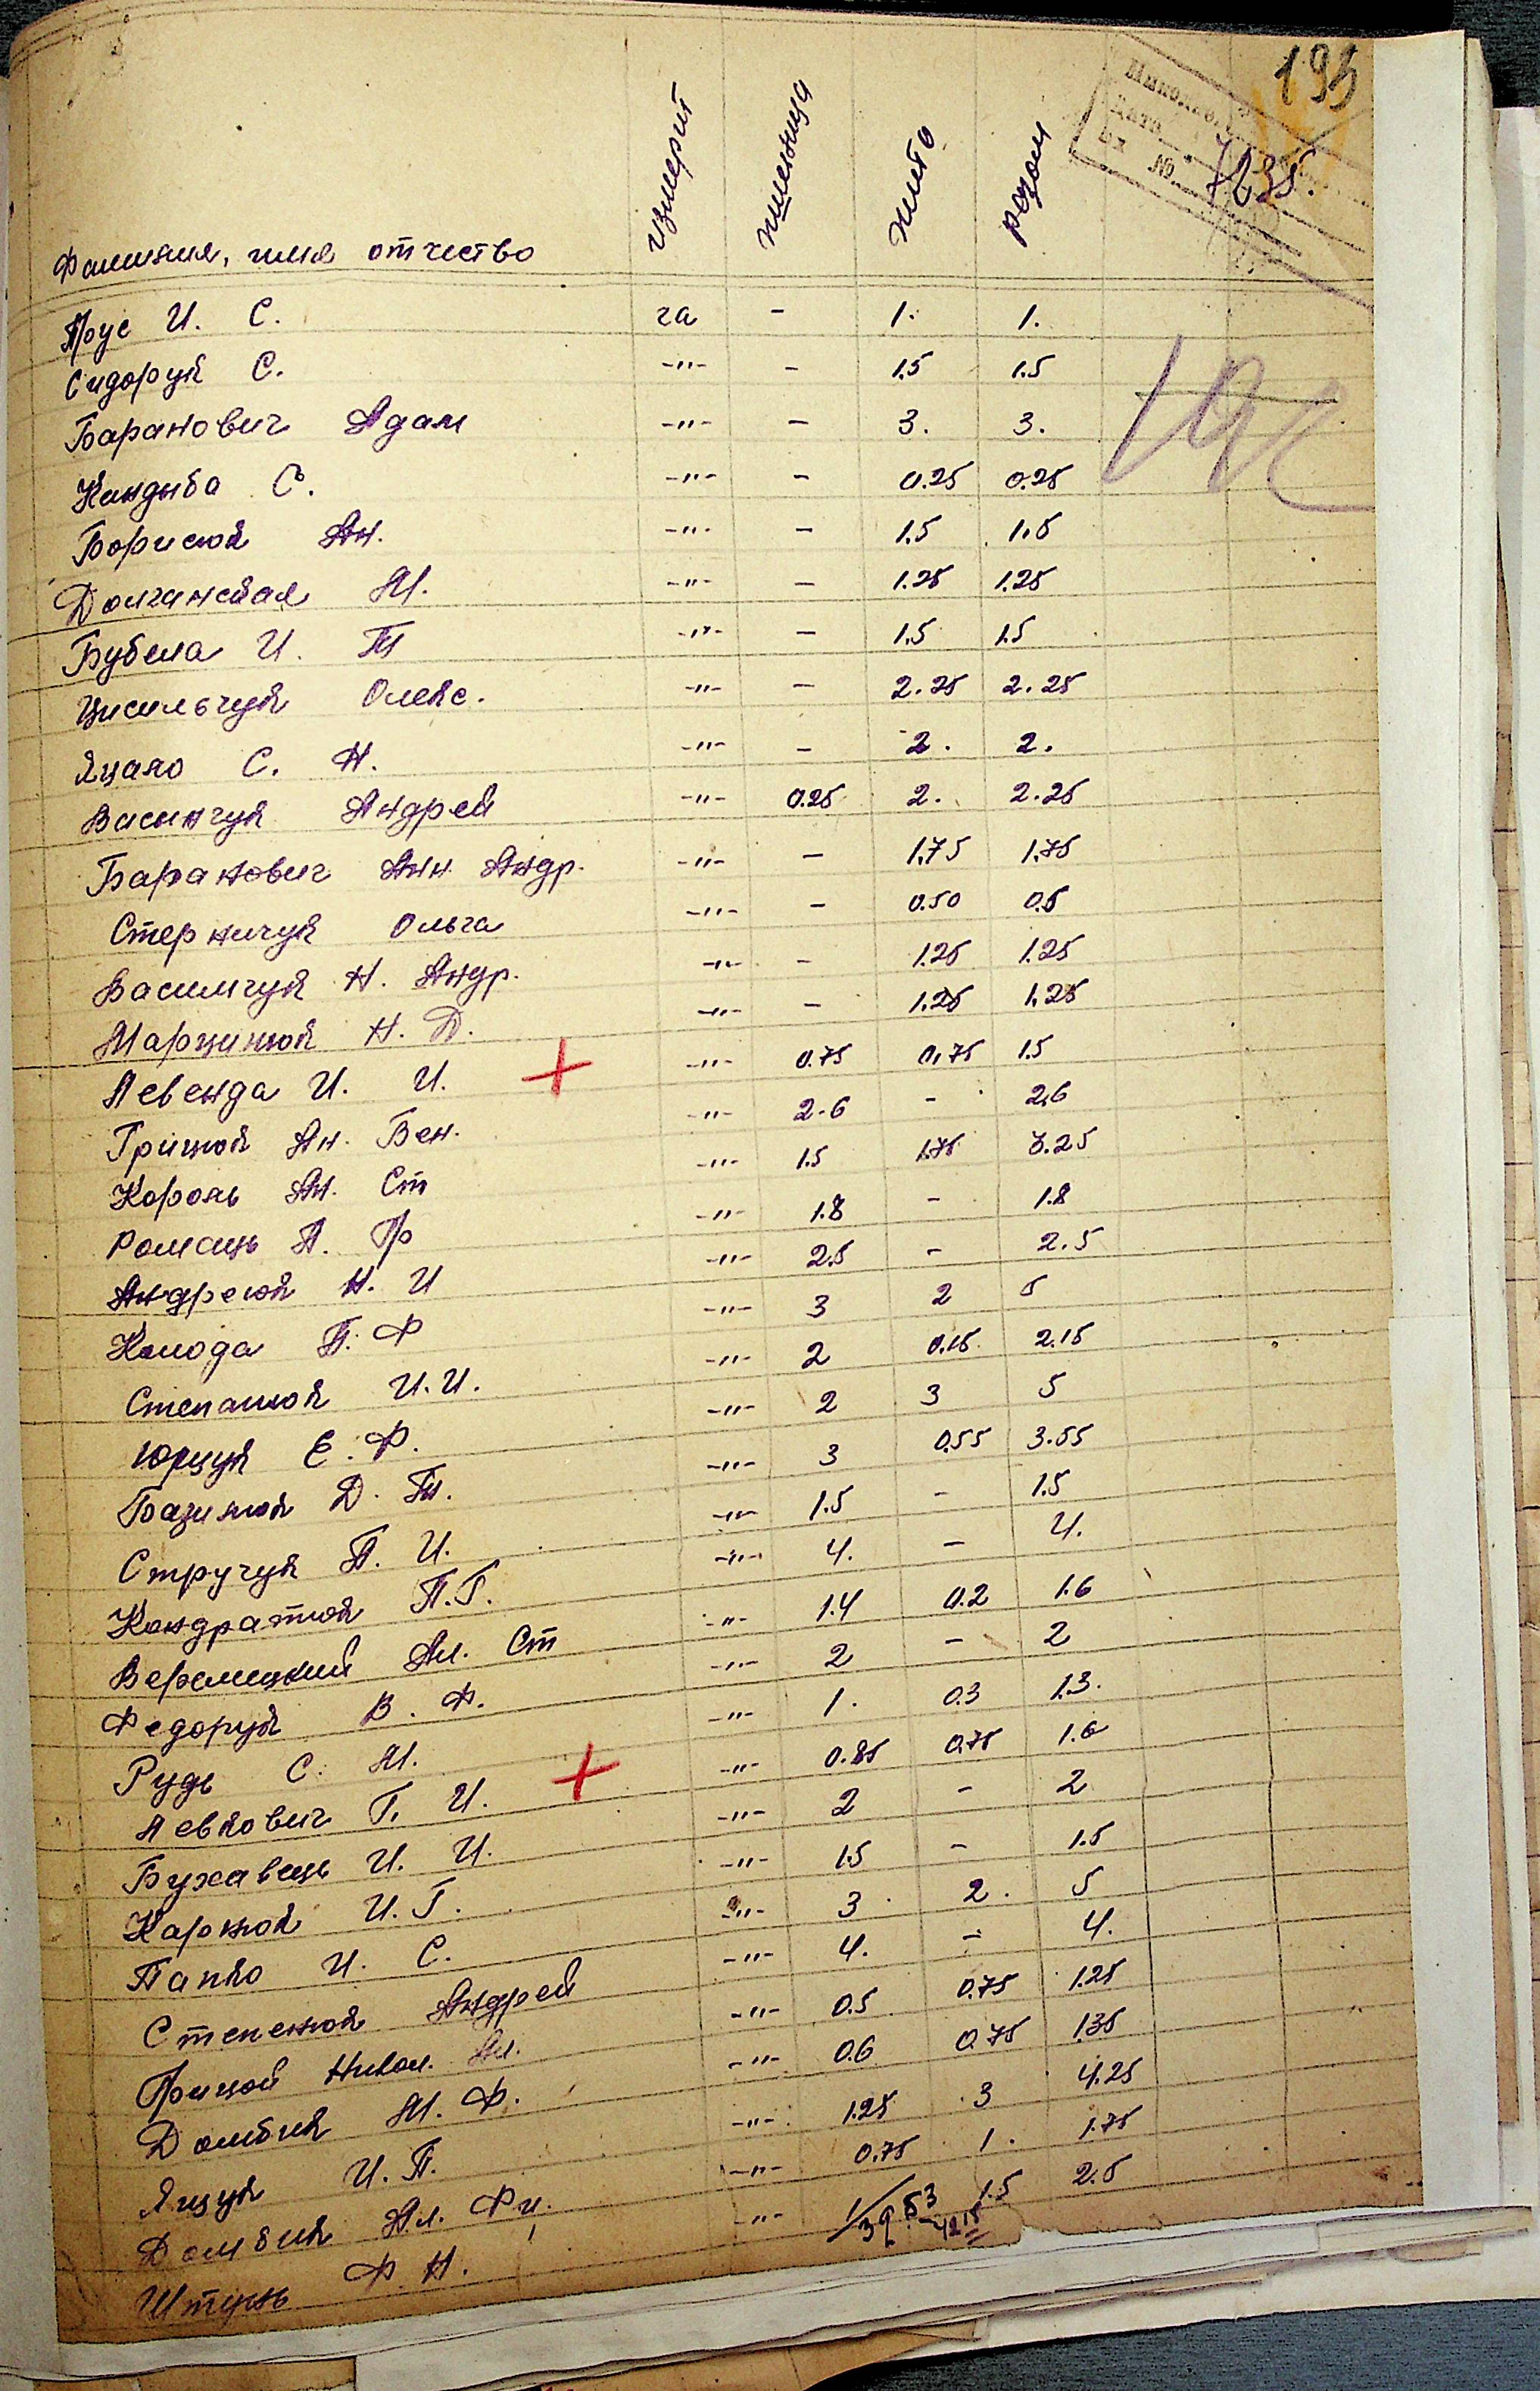 195
Дата
Вх №. 7235.
Фамилия, имя отчество измерит пшеница жито розом
Прус И. С. га - 1. 1.
Сидорук С. -"- - 1.5 1.5
Баранович Адам -"- - 3. 3.
Кандыба С. -"- - 0.25 0.25
Борисюк Ан. -"- - 1.5 1.5
Долганская М. -"- - 1.25 1.25
Бубела И. П -"- - 1.5 1.5
Цисельчук Олекс. -"- - 2.25 2.25
Яцако С. Н. -"- - 2. 2.
Васинчук Андрей -"- 0.25 2. 2.25
Баранович Анн. Андр. -"- - 1.75 1.75
Стерничук Ольга -"- - 0.50 0.5
Василчук Н. Андр. -"- - 1.25 1.25
Марценюк Н. Д. -"- - 1.25 1.25
Левенда И. И. -"- 0.75 0.75 1.5
Грицюк Ан. Вен. -"- 2.6 - 2.6
Король Ан. Ст -"- 1.5 1.75 3.25
Ромець П. Гр -"- 1.8 - 1.8
Андреюк Н. И -"- 2.5 - 2.5
Колода П. Ф -"- 3 2 5
Степанюк И.И. -"- 2 0.15 2.15
Юрчук Е. Ф. -"- 2 3 5
Бацинюк Д. П. -"- 3 0.55 3.55
Стручук П. И. -"- 1.5 - 1.5
Кондратюк П.Г. -"- 4. - 4.
Веремицкий Ал. Ст -"- 1.4 0.2 1.6
Федорук В. Ф. -"- 2 - 2
Рудь С. М. -"- 1. 0.3 1.3.
Левкович Г. И. -"- 0.85 0.75 1.6
Бухавець И. И. -"- 2 - 2
Карнюк И.Г. -"- 1.5 - 1.5
Папко И. С. -"- 3 2. 5
Степенюк Андрей -"- 4. - 4.
Грицюк Никол. Ал. -"- 0.5 0.75 1.25
Домбик М. Ф. -"- 0.6 0.75 1.35
Яицук И. П. -"- 1.25 3 4.25
Домбик Ал. Фи. -"- 0.75 1. 1.75
Штунь Ф. Н. -"- 1 1.5 2.5